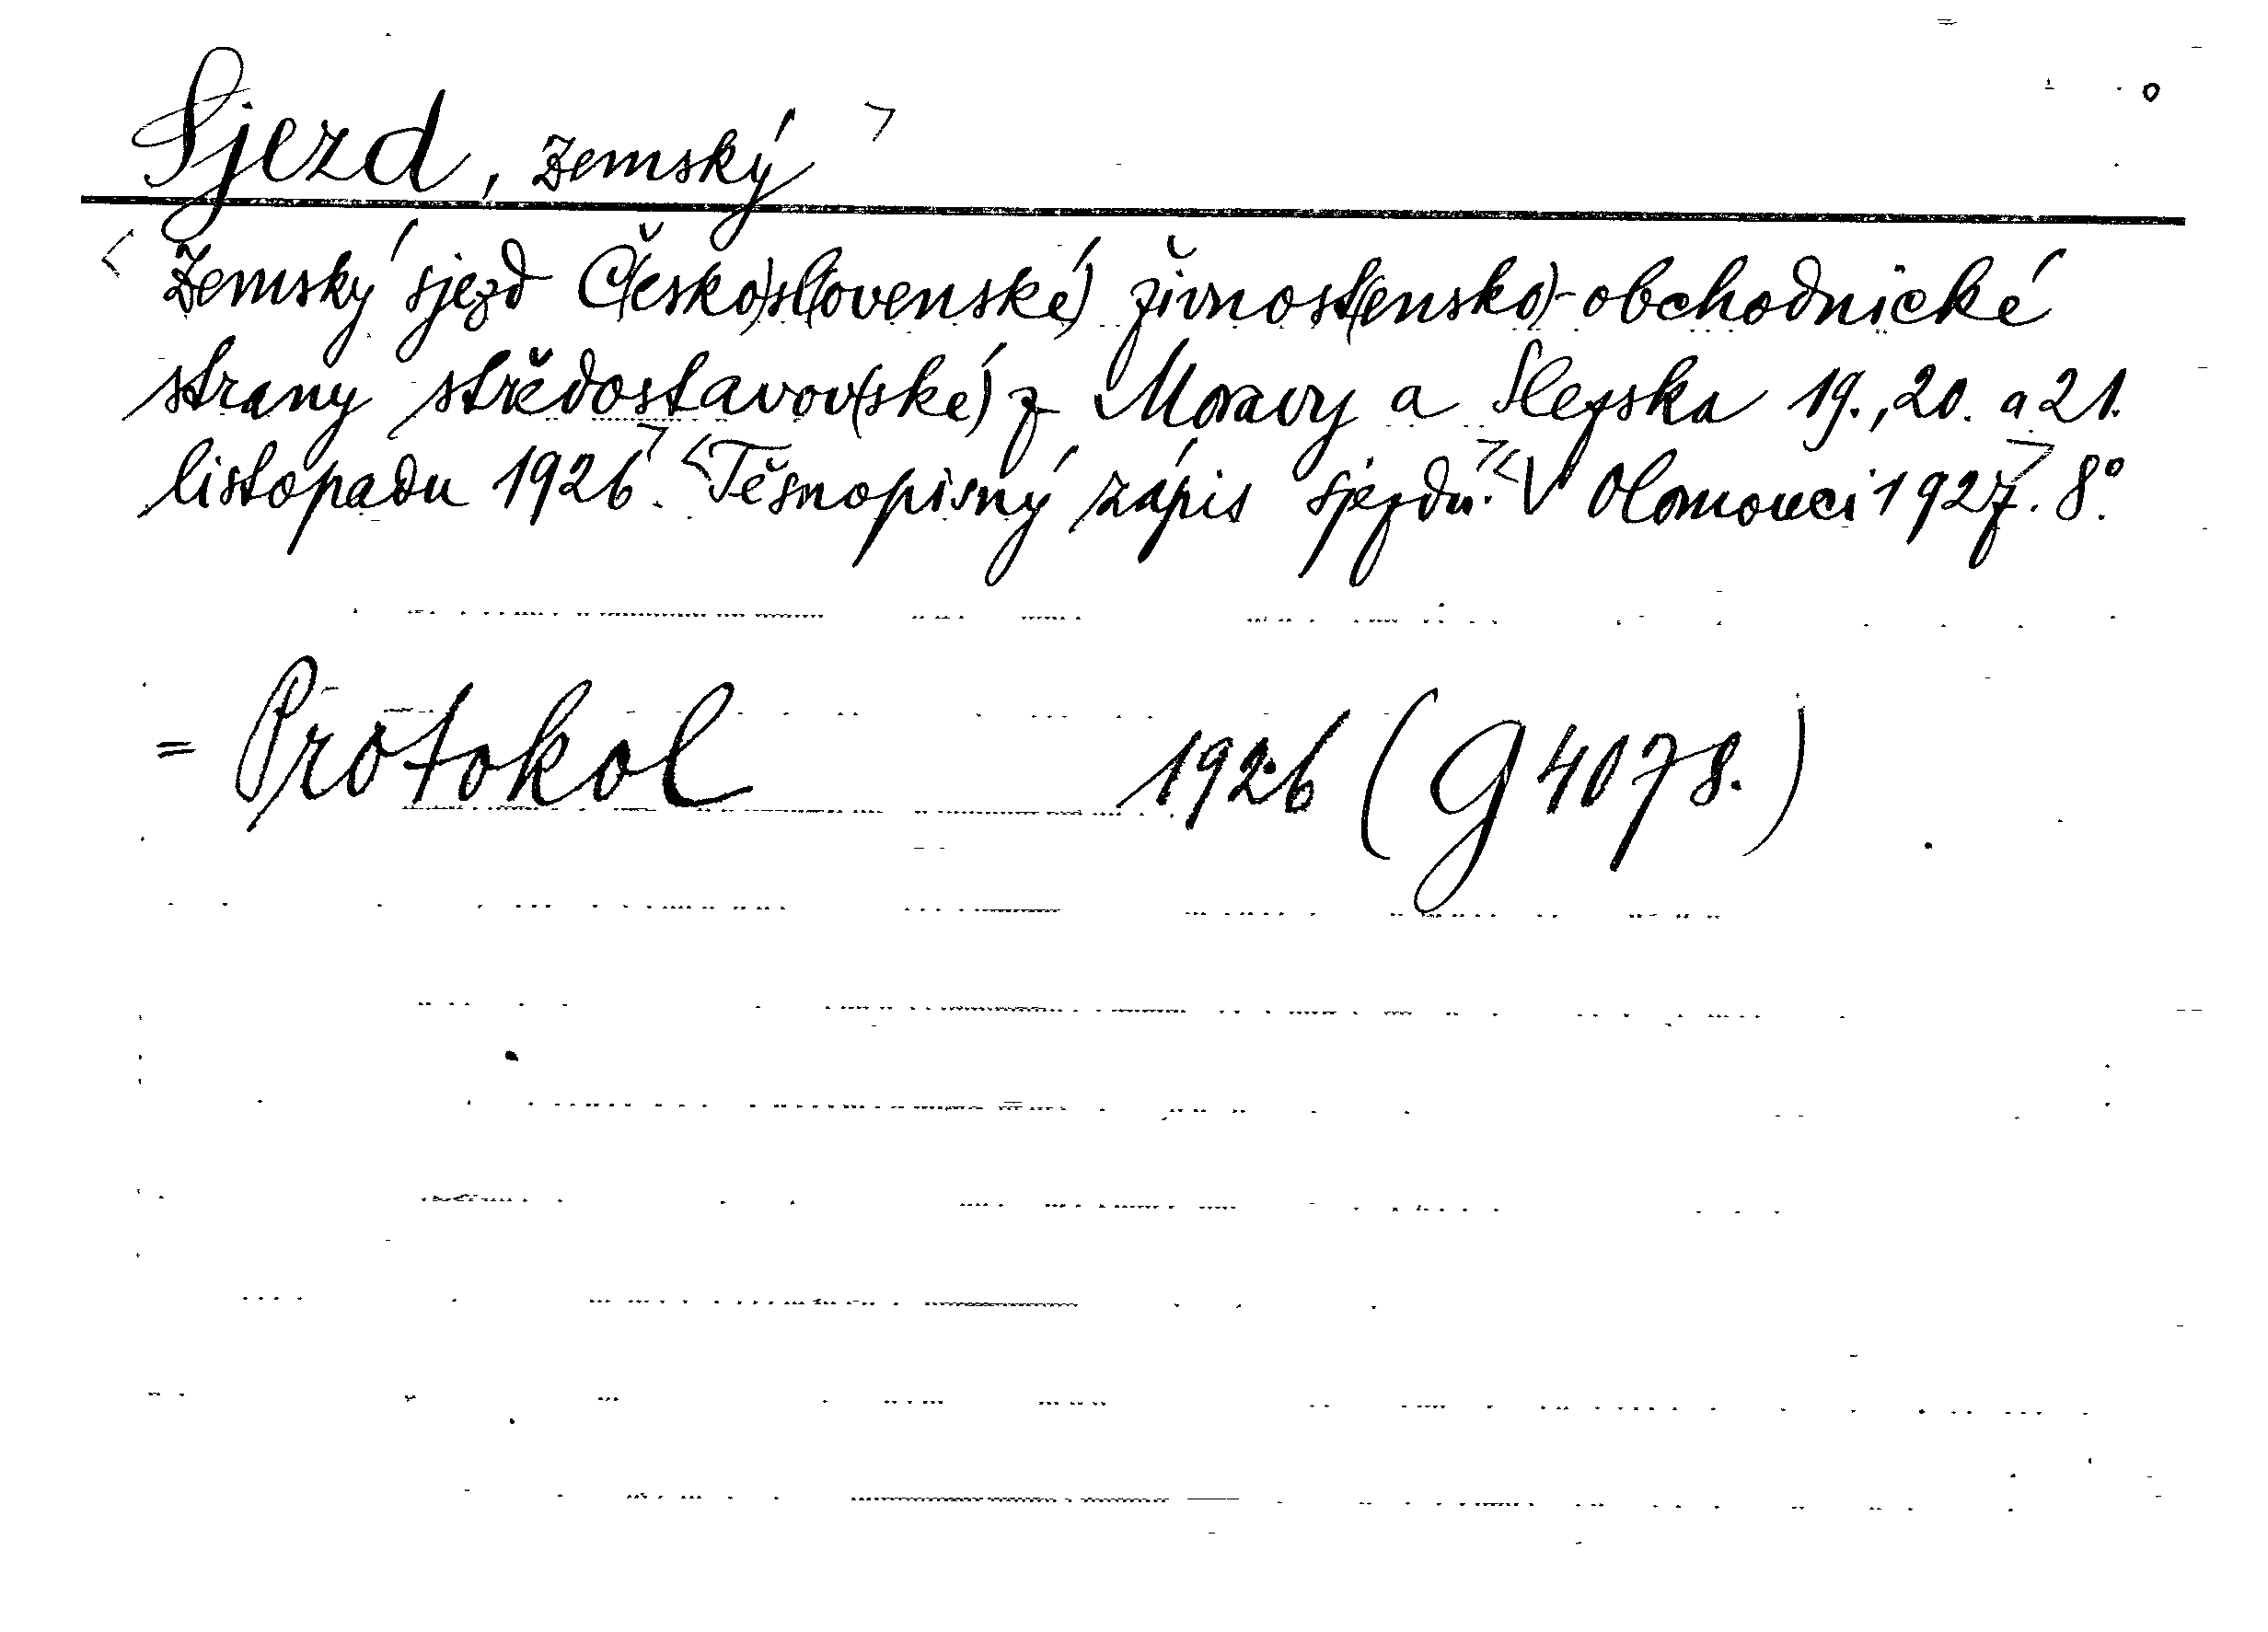 Sjezd, zemský >
< Zemský sjezd Č(esko)sl(ovenské) živnost(ensko)-obchodnické
strany středostavov(ské) z Moravy a Slezska 19., 20. a 21.
listopadu 1926.> <Těsnopisný zápis sjezdu.> <V Olomouci 1927>. 8°.
= Protokol 1926 (G 4078.)